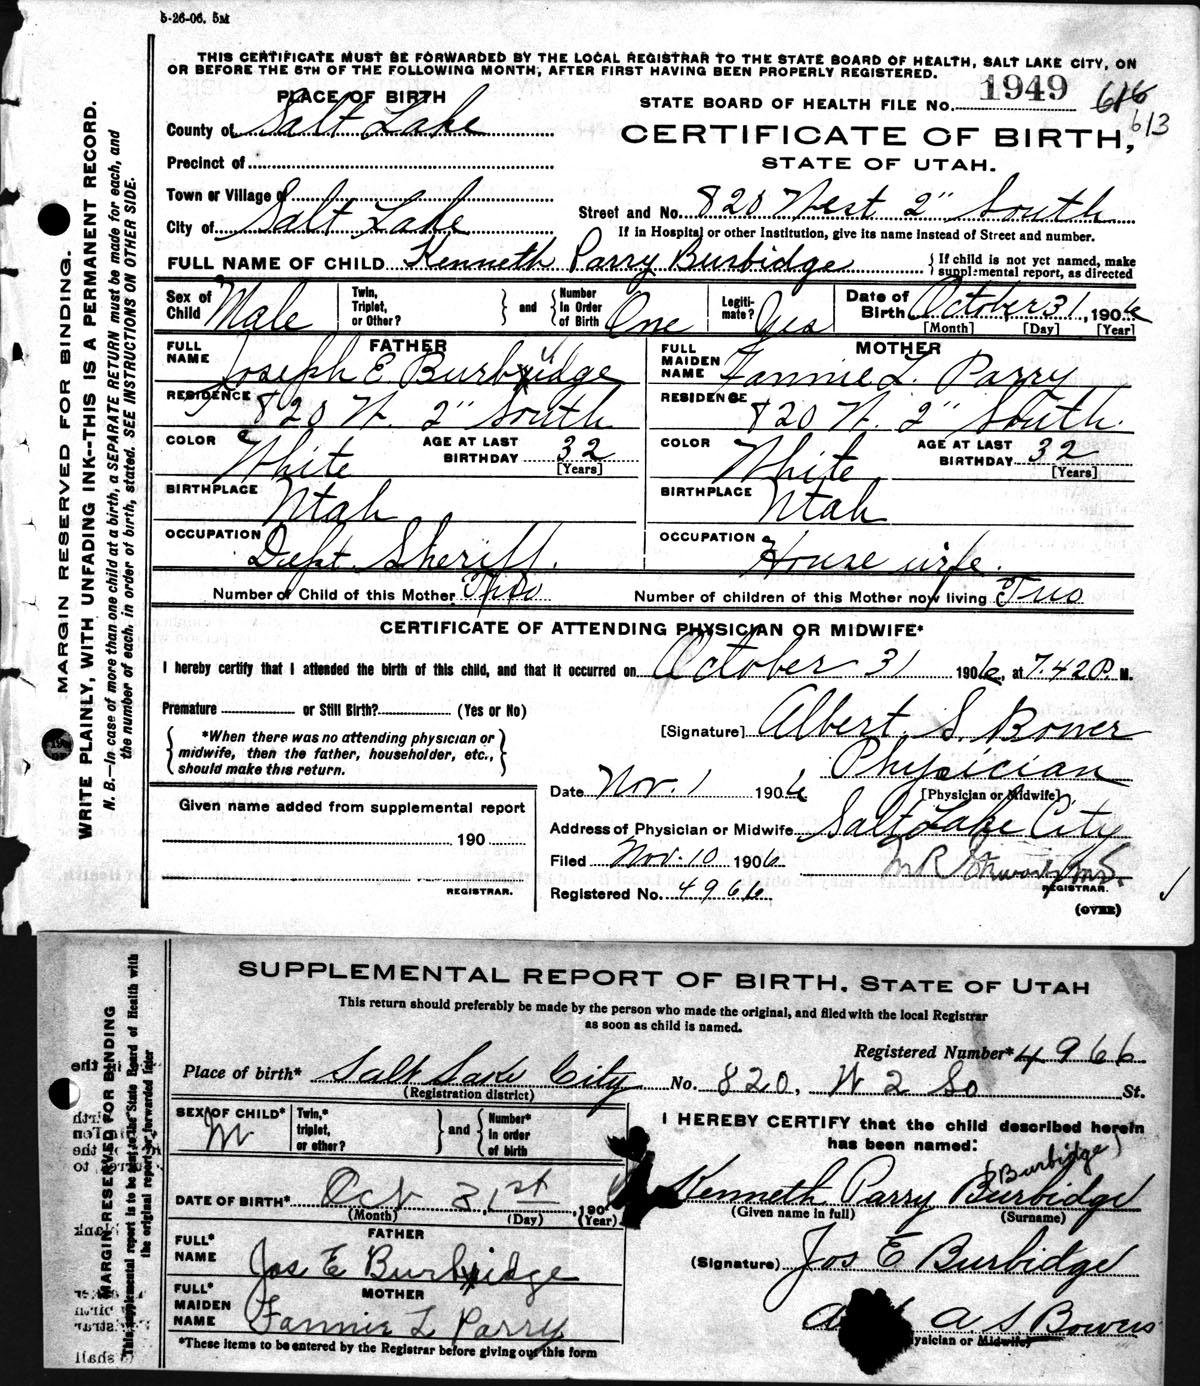 5-26-06. 5M
THIS CERTIFICATE MUST BE FORWARDED BY THE LOCAL REGISTRAR TO THE STATE BOARD OF HEALTH, SALT LAKE CITY, ON
OR BEFORE THE 5TH OF THE FOLLOWING MONTH, AFTER FIRST HAVING BEEN PROPERLY REGISTERED.
PLACE OF BIRTH
STATE BOARD OF HEALTH FILE NO. 1949 616
613
County of Salt Lake
CERTIFICATE OF BIRTH,
STATE OF UTAH.
Precinct of
Town or Village of
City of Salt Lake
Street and No. 820 West 2" South
If in Hospital or other Institution, give its name instead of Street and number.
FULL NAME OF CHILD Kenneth Parry Burbidge { If child is not yet named, make supplemental report, as directed
Sex of Child Male Twin, Triplet, or Other? } and { Number in Order of Birth One Legiti-mate? Yes Date of Birth October 31, 1906
[Month] [Day] [Year]
FATHER MOTHER
FULL NAME Joseph E. Burbidge FULL MAIDEN NAME Fannie L. Parry
RESIDENCE 820 W. 2" South RESIDENCE 820 W. 2" South.
COLOR White AGE AT LAST BIRTHDAY 32 [Years] COLOR White AGE AT LAST BIRTHDAY 32 [Years]
BIRTHPLACE Utah BIRTHPLACE Utah
OCCUPATION Dept. Sheriff. OCCUPATION House wife.
Number of Child of this Mother Two Number of children of this Mother now living Two
CERTIFICATE OF ATTENDING PHYSICIAN OR MIDWIFE*
I hereby certify that I attended the birth of this child, and that it occurred on October 31 1906, at 7.42 P. M.
Premature or Still Birth? (Yes or No)
[Signature] Albert S. Bower
*When there was no attending physician or
midwife, then the father, householder, etc.,
should make this return.
Physician
[Physician or Midwife]
Date Nov. 1 1906
Given name added from supplemental report
190
REGISTRAR.
Address of Physician or Midwife Salt Lake City
Filed Nov. 10 1906
REGISTRAR.
Registered No. 4966
(OVER)
MARGIN RESERVED FOR BINDING.
WRITE PLAINLY, WITH UNFADING INK--THIS IS A PERMANENT RECORD.
N. B.—In case of more than one child at a birth, a SEPARATE RETURN must be made for each, and
the number of each, in order of birth, stated. SEE INSTRUCTIONS ON OTHER SIDE.
SUPPLEMENTAL REPORT OF BIRTH, STATE OF UTAH
This return should preferably be made by the person who made the original, and filed with the local Registrar
as soon as child is named.
Registered Number* 4966
Place of birth* Salt Lake City No. 820. W 2 So St.
(Registration district)
SEX OF CHILD* M Twin,* triplet, or other? } and { Number* in order of birth
I HEREBY CERTIFY that the child described herein
has been named:
(Burbidge)
DATE OF BIRTH* Oct 31st, 190
(Month) (Day) (Year)
Kenneth Parry Burbidge
(Given name in full) (Surname)
FATHER
FULL* NAME Jos E Burbidge
(Signature) Jos E Burbidge
MOTHER
FULL* MAIDEN NAME Fannie L Parry
A S Bowers
Physician or Midwife
*These items to be entered by the Registrar before giving out this form
MARGIN RESERVED FOR BINDING
This supplemental report is to be sent to the State Board of Health with
the original report or forwarded later